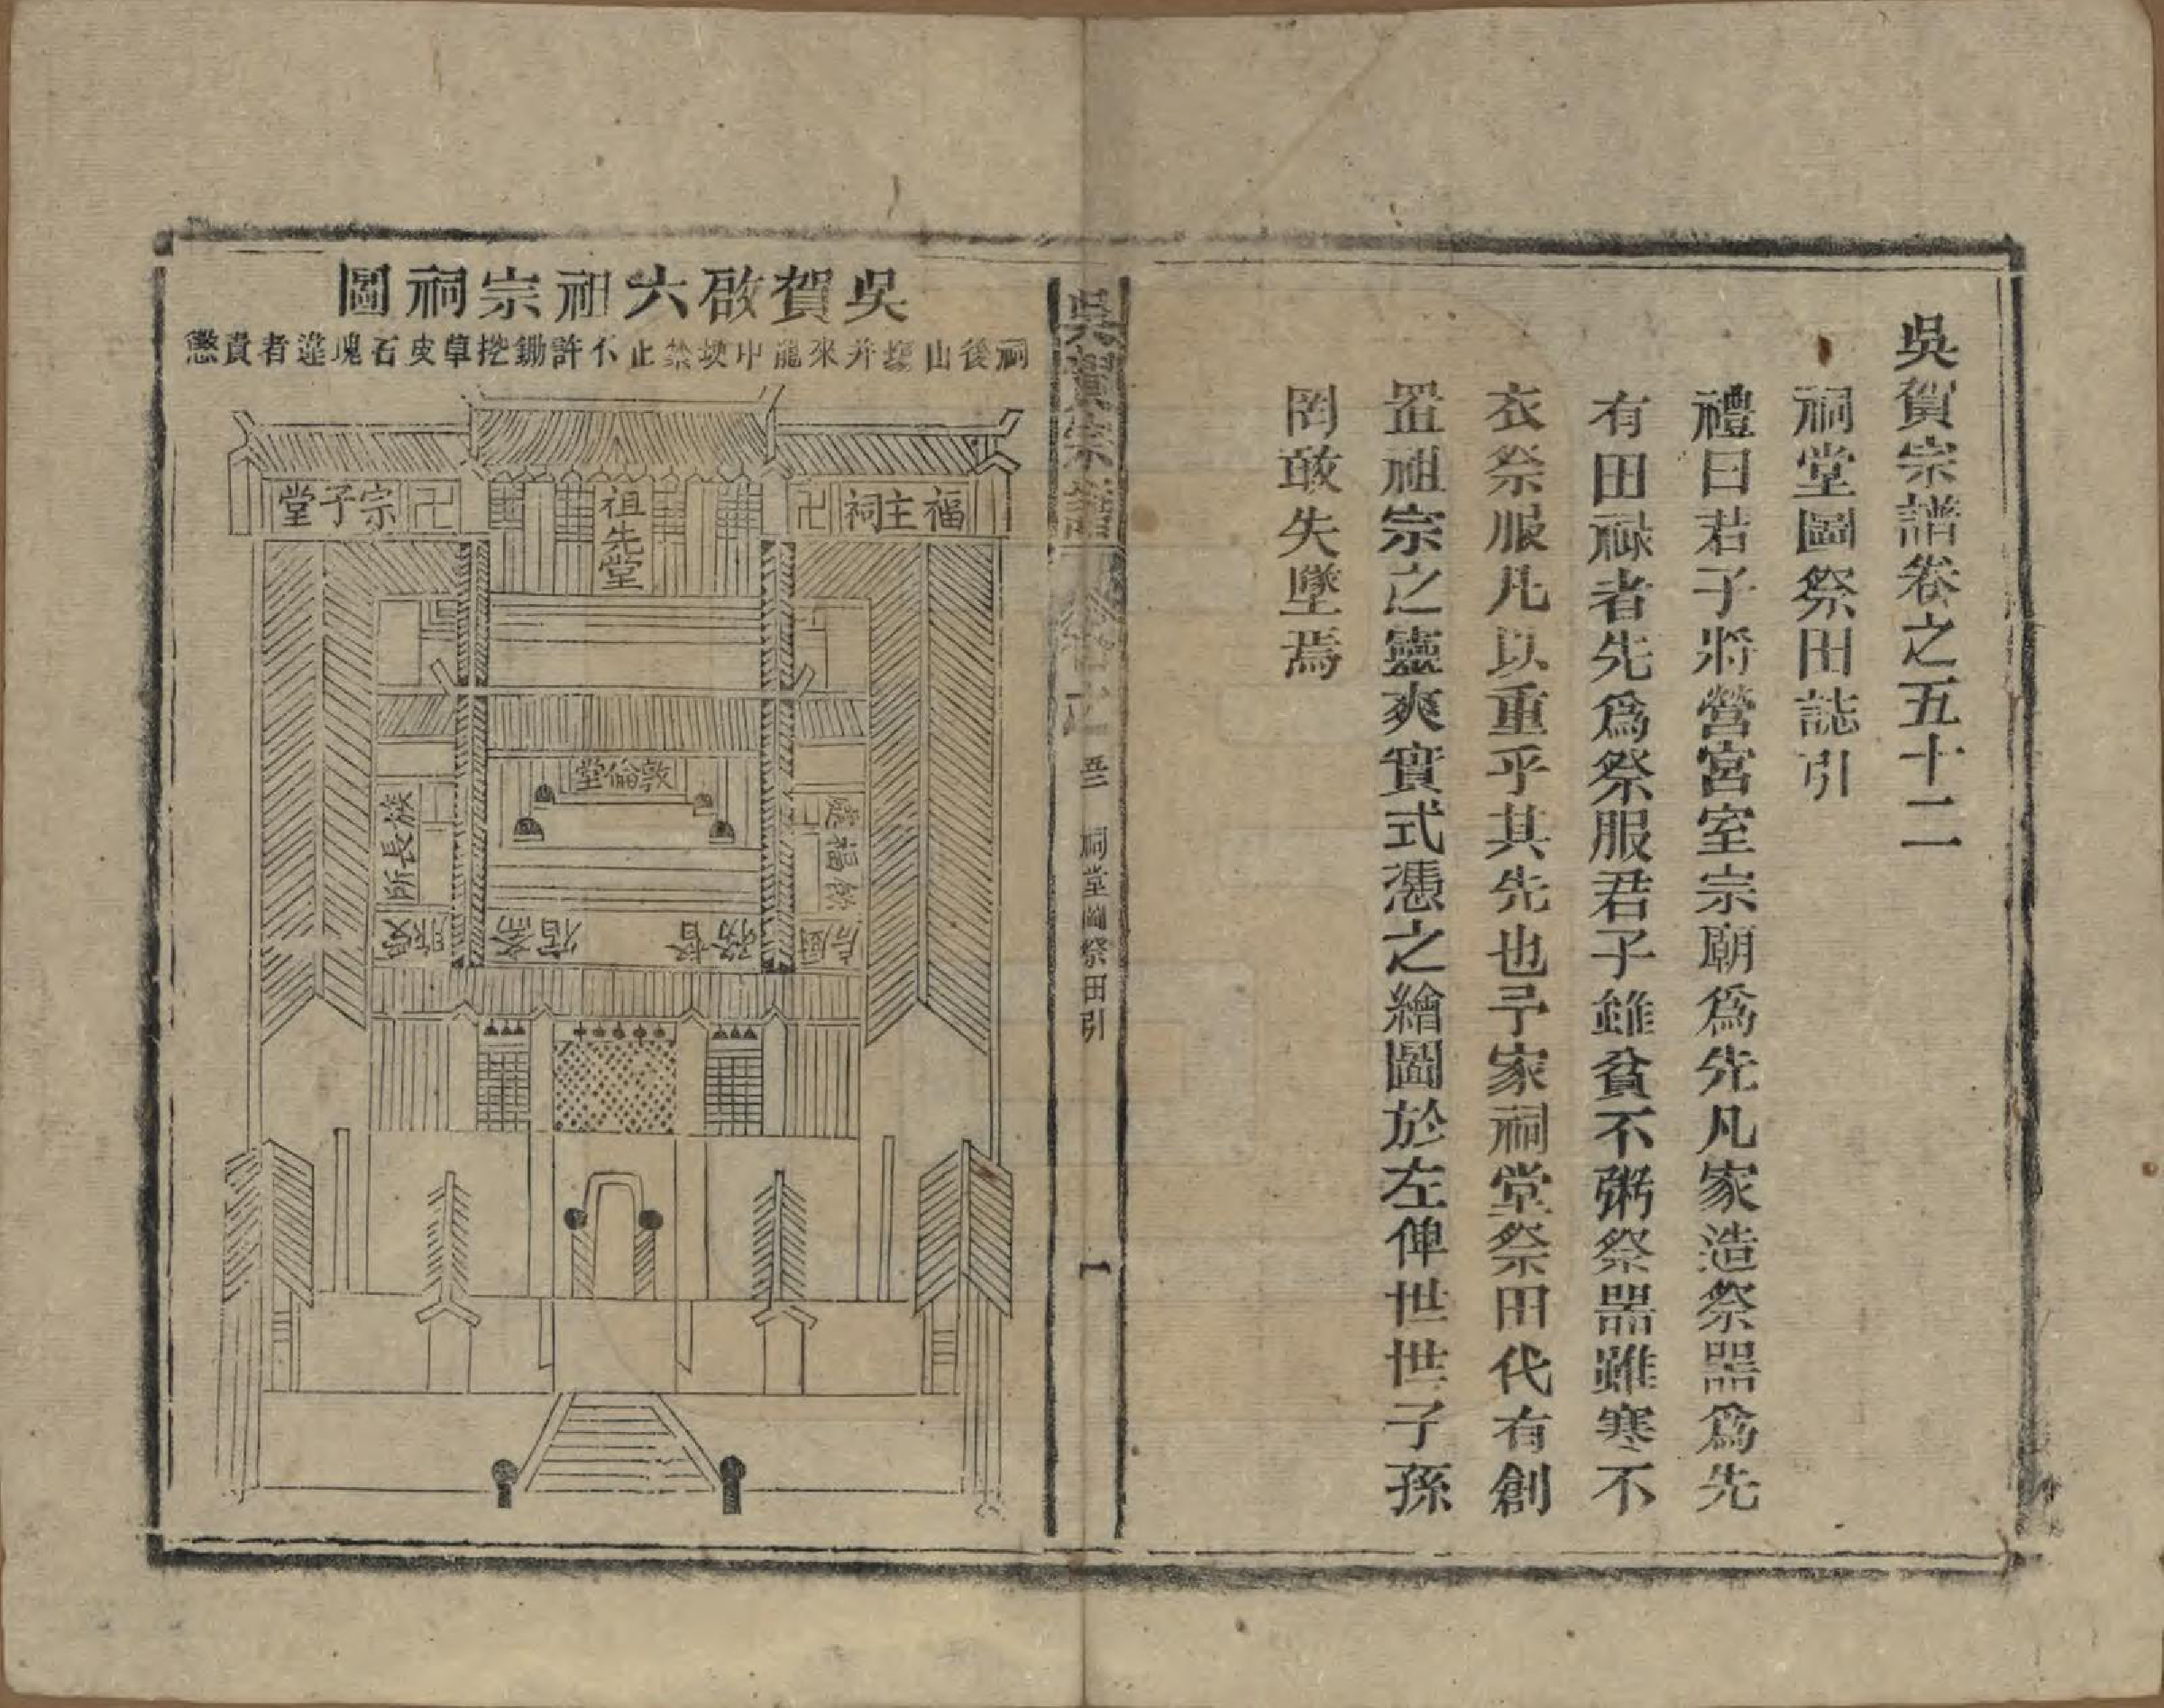 吳賀宗譜卷之五十二
祠堂圖祭田誌引
禮曰君子將營宮室宗廟爲先凡家造祭器爲先
有田祿者先爲祭服君子雖貧不粥祭器雖寒不
衣祭服凡以重乎其先也予家祠堂祭田代有創
置祖宗之靈爽實式憑之繪圖於左俾世世子孫
罔敢失墜焉
吳賀宗譜 卷之 五二 祠堂圖祭田引 一
吳賀啟六祖宗祠圖
祠後山壋并來龍中坟禁止不許鋤挖草皮石塊違者責懲
福主祠
祖先堂
宗子堂
敦倫堂
飲福處
族長所
厨房
督務
齋宿